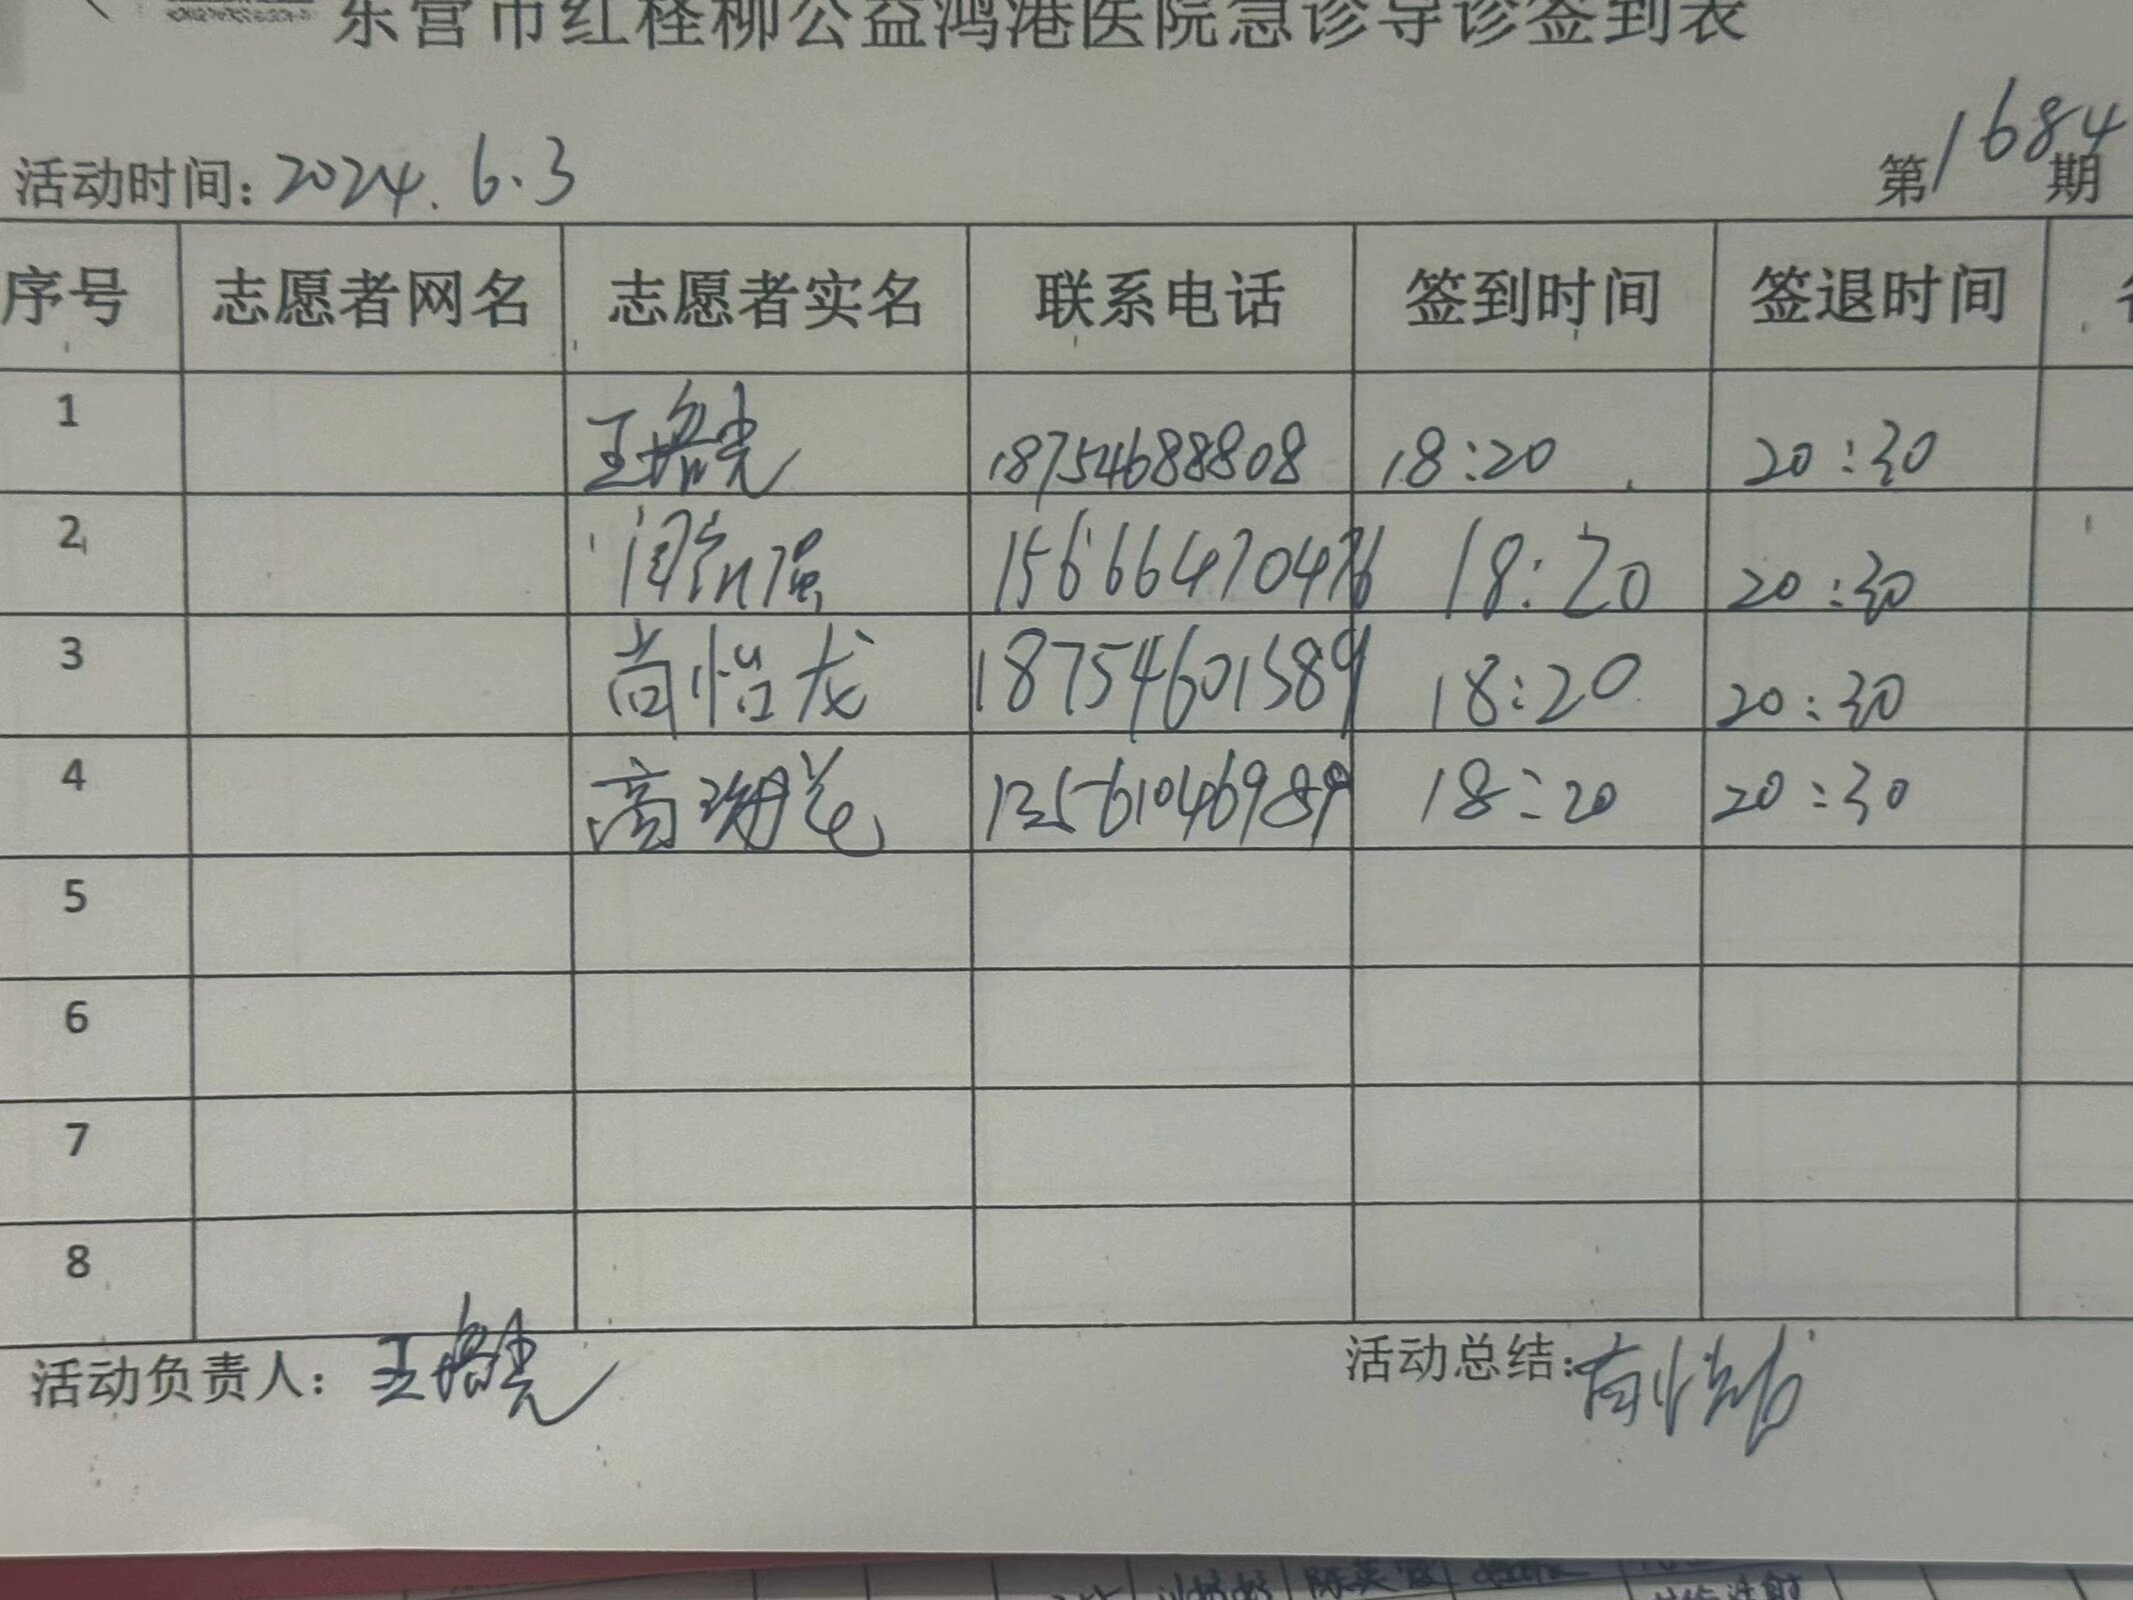 东营市红柽柳公益鸿港医院急诊导诊签到表
活动时间: 2024.6.3 第1684期
序号 志愿者网名 志愿者实名 联系电话 签到时间 签退时间
1 18754688808 18:20 20:30
2 闫红强 15666470476 18:20 20:30
3 尚怡龙 18754601589 18:20 20:30
4 13561046989 18:20 20:30
5
6
7
8
活动负责人: 活动总结: